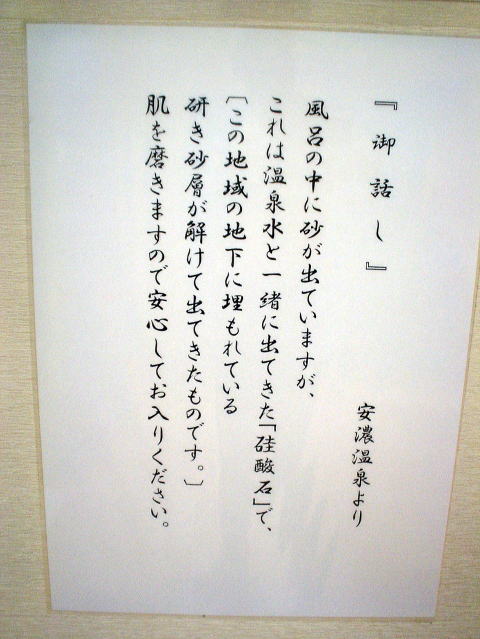 『御話し』
安濃温泉より
風呂の中に砂が出ていますが、
これは温泉水と一緒に出てきた「硅酸石」で、
〔この地域の地下に埋もれている
研き砂層が解けて出てきたものです。〕
肌を磨きますので安心してお入りください。